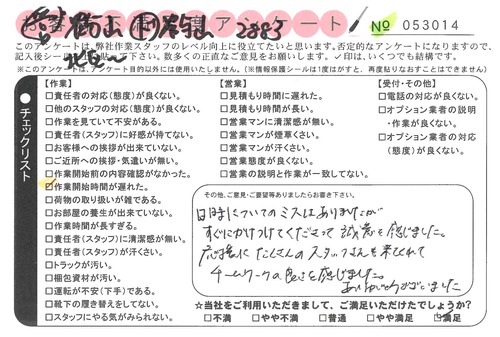 お客様 アンケート
№ 053014
このアンケートは、弊社作業スタッフのレベル向上に役立てたいと思います。否定的なアンケートになりますので、
記入後シールを貼って下さい。数多くの正直なご意見をお願いします。✓印は、いくつでも結構です。
※このアンケートは、アンケート目的以外には使用いたしません。(※情報保護シールは1度はがすと、再度粘りなおすことはできません)
チェックリスト
【作業】
□責任者の対応(態度)が良くない。
□他のスタッフの対応(態度)が良くない。
□作業を見ていて不安がある。
□責任者(スタッフ)に好感が持てない。
□お客様への挨拶が出来ていない。
□ご近所への挨拶・気遣いが無い。
□作業開始前の内容確認がなかった。
□作業開始時間が遅れた。
□荷物の取り扱いが雑である。
□お部屋の養生が出来ていない。
□作業時間が長すぎる。
□責任者(スタッフ)に清潔感が無い。
□責任者(スタッフ)が汗くさい。
□トラックが汚い。
□梱包資材が汚い。
□運転が不安(下手)である。
□靴下の履き替えをしてない。
□スタッフにやる気がみられない。
【営業】
□見積もり時間に遅れた。
□見積もり時間が長い。
□営業マンに清潔感が無い。
□営業マンが煙草くさい。
□営業マンが汗くさい。
□営業態度が良くない。
□営業の説明と作業が一致してない。
【受付・その他】
□電話の対応が良くない。
□オプション業者の説明
・作業が良くない。
□オプション業者の対応
(態度)が良くない。
その他、ご意見・ご要望等ありましたらお書き下さい。
日時についてのミスはありましたが
すぐにかけつけてくださって誠意を感じました。
応援に たくさんのスタッフさんも来られて
チームワークの良さを感じました。
ありがとうございました
☆当社をご利用いただきまして、ご満足いただけたでしょうか?
□不満 □やや不満 □普通 □やや満足 ☑満足